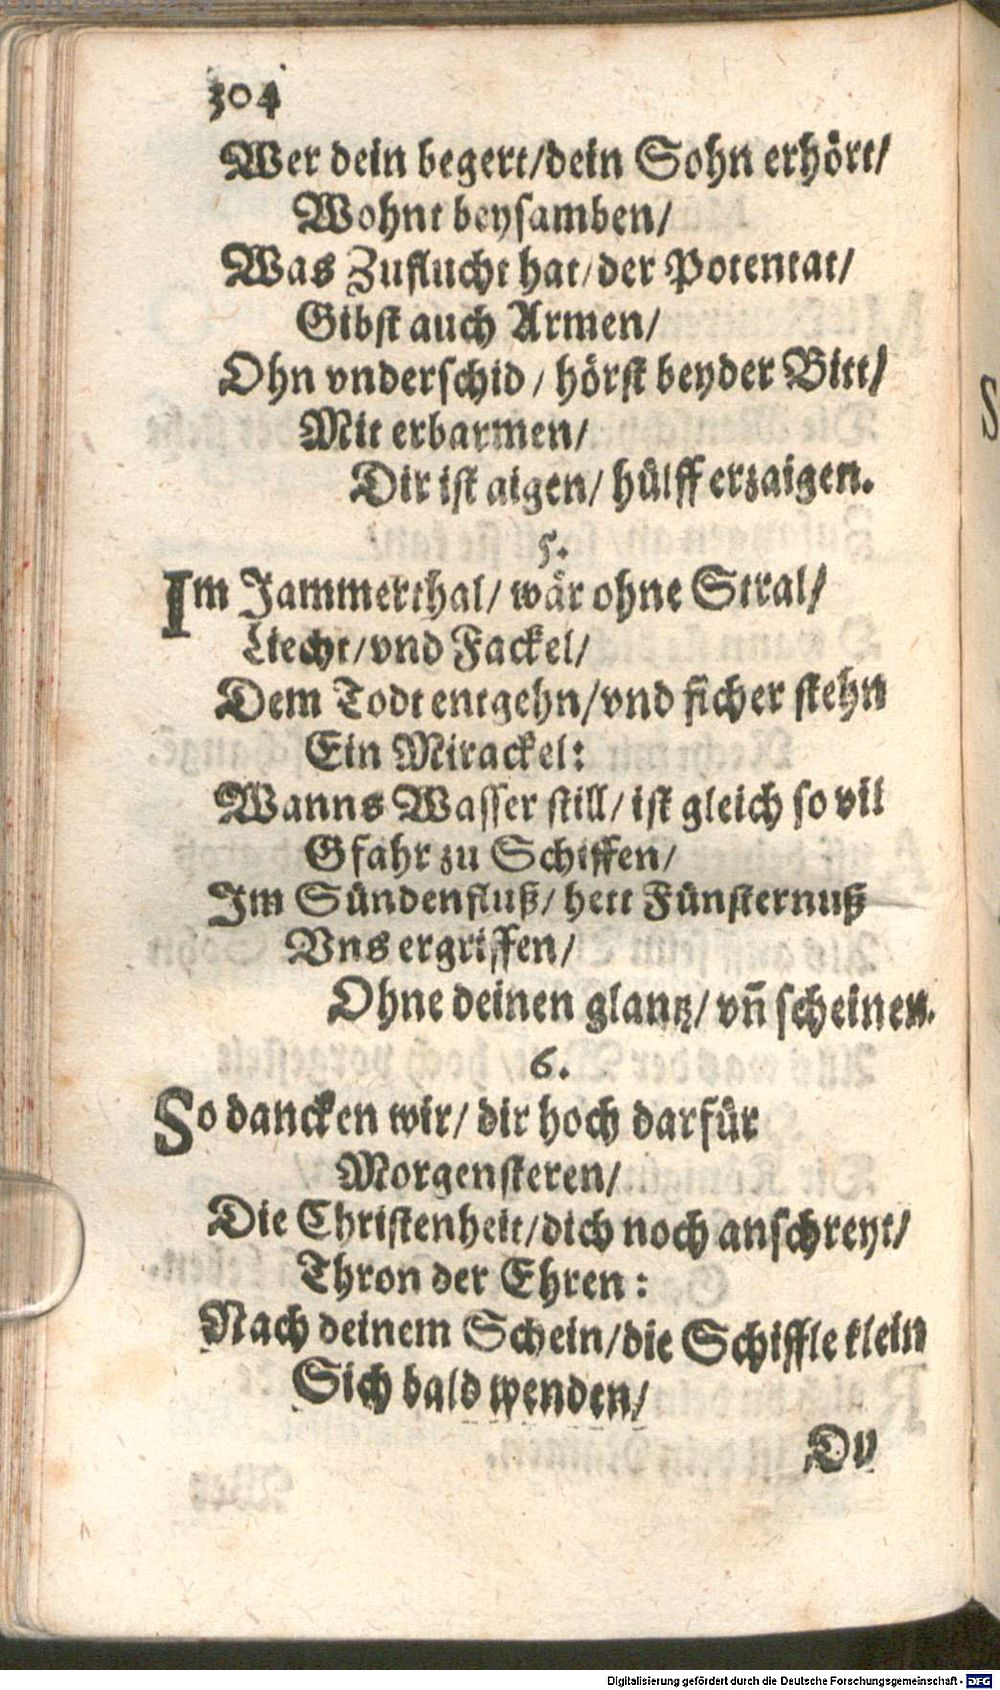 304
Wer dein begert/dein Sohn erhört/
Wohnt beysamben/
Was Zuflucht hat/der Potentat/
Gibst auch Armen/
Ohn vnderschid / hörst beyder Bitt/
Mit erbarmen/
Dir ist aigen/ hülff erzaigen.
5.
Im Jammerthal/ wär ohne Stral/
Liecht/vnd Fackel/
Dem Todt entgehn/vnd sicher stehn
Ein Mirackel:
Wanns Wasser still/ ist gleich so vil
Gfahr zu Schiffen/
Im Sündenfluß/ hett Fünsternuß
Vns ergriffen/
Ohne deinen glantz/ vn̄ scheinen.
6.
So dancken wir/ dir hoch darfür
Morgensteren/
Die Christenheit/dich noch anschreyt/
Thron der Ehren:
Nach deinem Schein/die Schiffle klein
Sich bald wenden/
Du
Digitalisierung gefördert durch die Deutsche Forschungsgemeinschaft - DFG